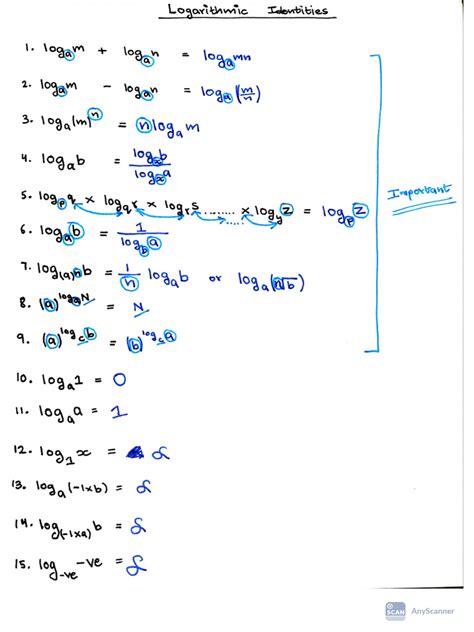 Logarithmic Identities
1. logₐm + logₐn = logₐmn
2. logₐm - logₐn = logₐ(m/n)
3. logₐ(m)ⁿ = n logₐm
4. logₐb = logₓb / logₓa
5. logₚq × log_q r × logᵣs ........ × log_y z = logₚz
6. logₐb = 1 / log_b a
7. log₍ₐ₎ₙb = 1/n logₐb or logₐ(ⁿ√b)
8. (a)^logₐN = N
9. (a)^log_c b = (b)^log_c a
Important
10. logₐ1 = 0
11. logₐa = 1
12. log₁x =
13. logₐ(-1×b) =
14. log₍₋₁ₓₐ₎b =
15. log₋ᵥₑ -ve =
SCAN AnyScanner